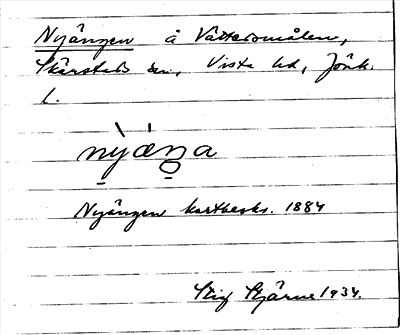 Nyängen å Vättersmålen,
Skärstads sn, Vista hd, Jönk.
l.
nỳæ̀ŋa
Nyängen kartbeskr. 1884
Stig Stjärne 1934.